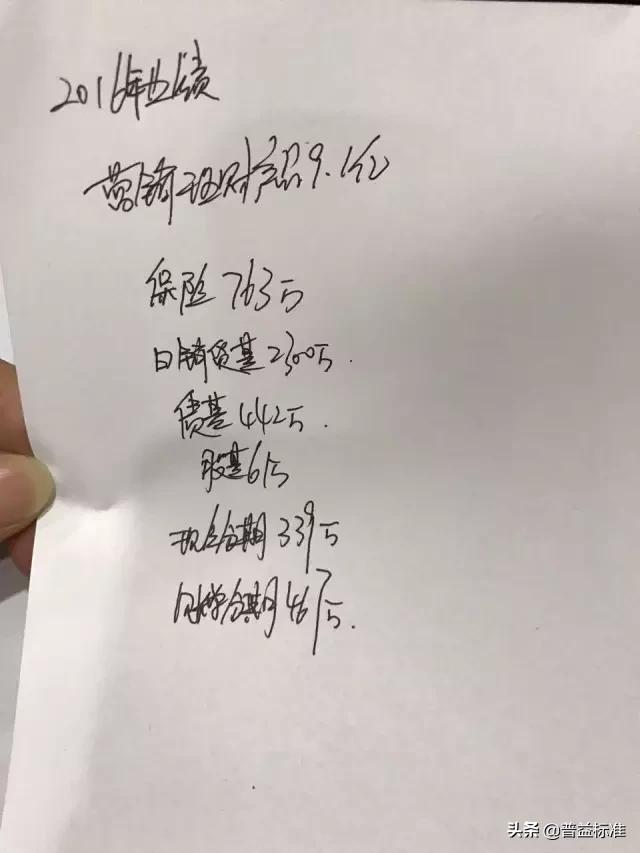 2016年业绩
营销理财产品9.1亿
保险763万
日销货基2300万.
债基442万.
股基61万
现金分期339万
分期467万.
头条 @普益标准